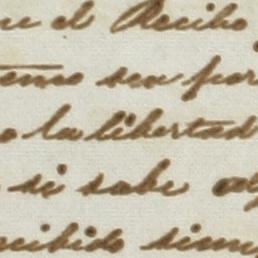 ue el Recibo
temo sea por
o la libertad
si sabe alg
ecibido siem